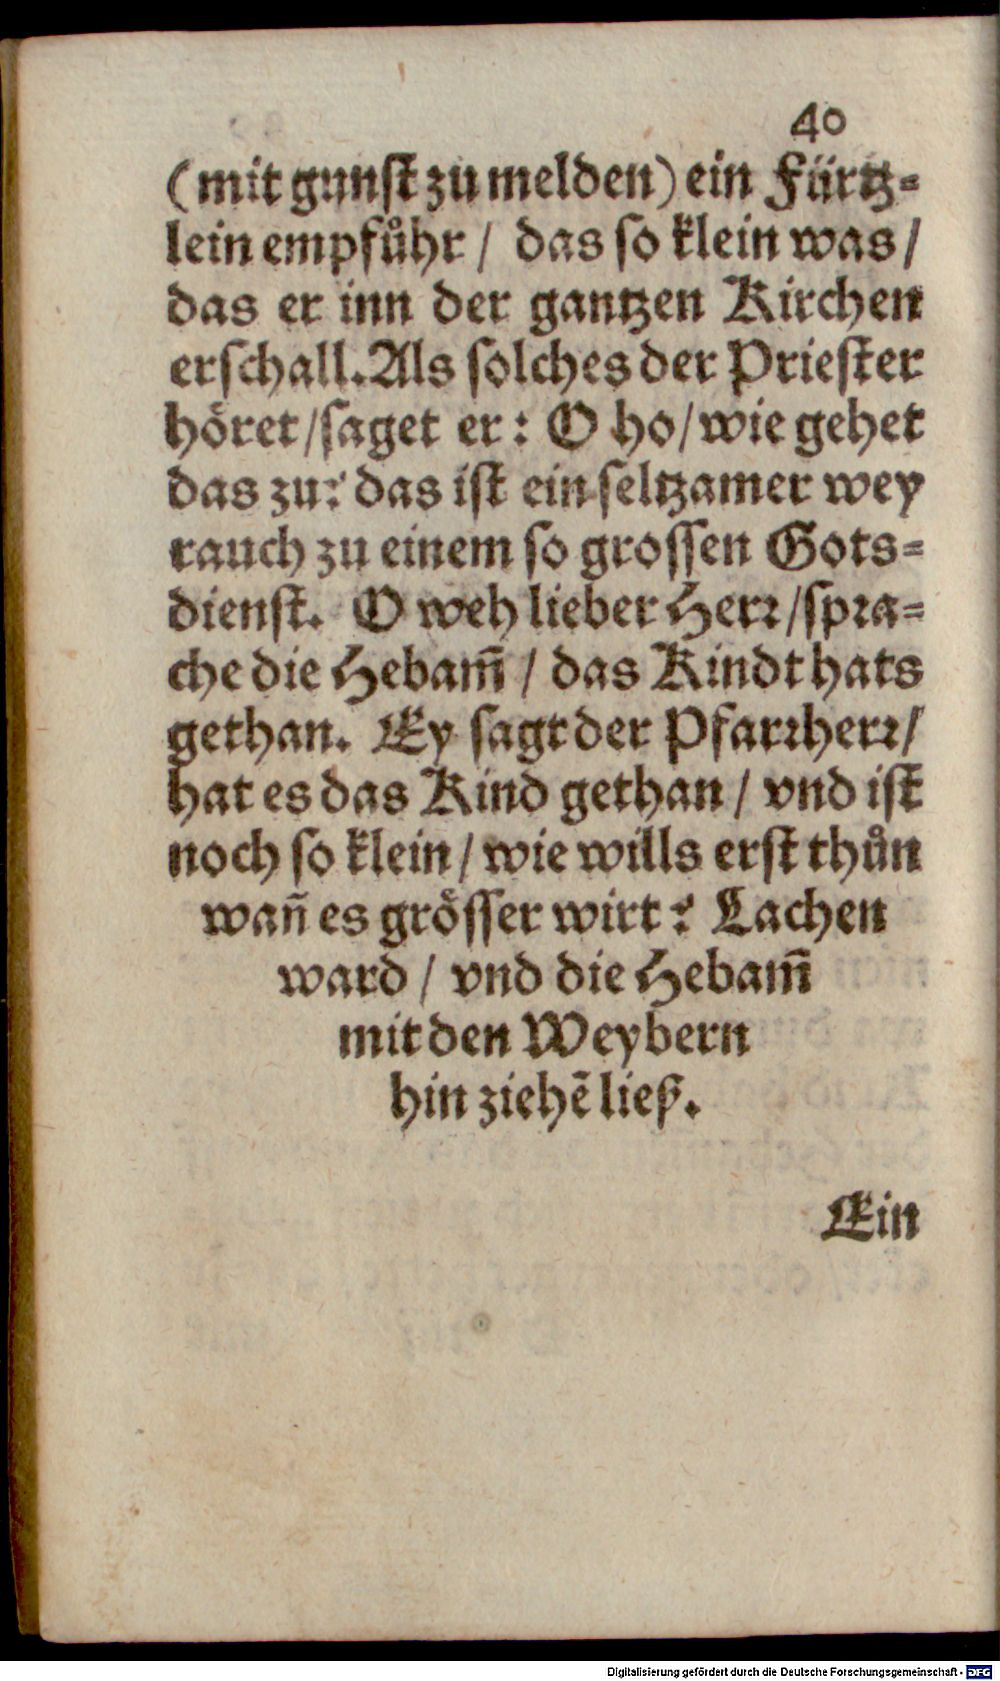 40
(mit gunst zu melden) ein Fürtz-
lein empfůhr / das so klein was /
das er inn der gantzen Kirchen
erschall. Als solches der Priester
höret / saget er: O ho / wie gehet
das zu? das ist ein seltzamer wey
rauch zu einem so grossen Gots-
dienst. O weh lieber Herr / spra-
che die Hebam̃ / das Kindt hats
gethan. Ey sagt der Pfarrherr /
hat es das Kind gethan / vnd ist
noch so klein / wie wills erst thůn
wañ es grösser wirt? Lachen
ward / vnd die Hebam̃
mit den Weybern
hin ziehẽ ließ.
Ein
Digitalisierung gefördert durch die Deutsche Forschungsgemeinschaft - DFG